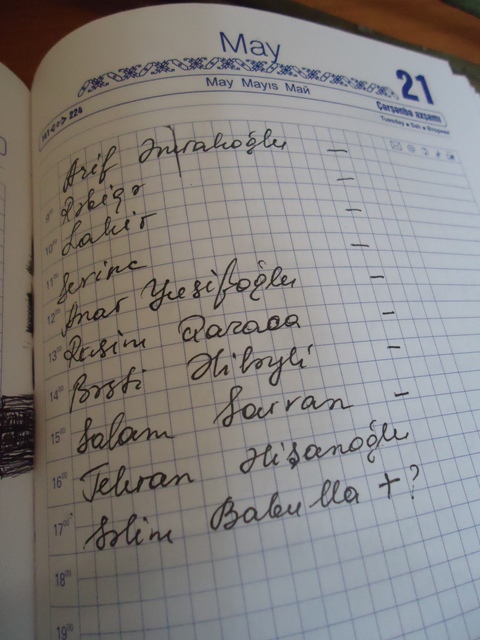 May
May Mayıs Май
21
141 <•> 224
Çərşənbə axşamı
Tuesday • Salı • Вторник
Arif Əmrahoğlu –
9⁰⁰ Rəbiqə –
10⁰⁰ Lahir –
11⁰⁰ Sevinc –
12⁰⁰ Anar Yusifoğlu –
13⁰⁰ Rasim Qaraca –
14⁰⁰ Əlibəyli –
15⁰⁰ Salam Sarvan –
16⁰⁰ Tehran Əlişanoğlu
17⁰⁰ Səlim Babulla + ?
18⁰⁰
19⁰⁰